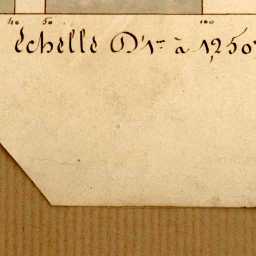 40 50 100
échelle D'1 à 1250